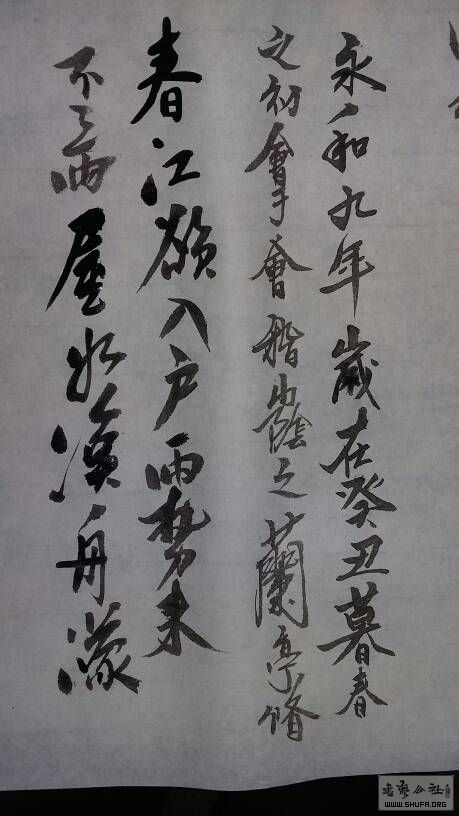 永和九年歲在癸丑暮春
之初會于會稽山陰之蘭亭脩
春江欲入户雨勢来
不已雨屋如漁舟濛
书艺公社
WWW.SHUFA.ORG